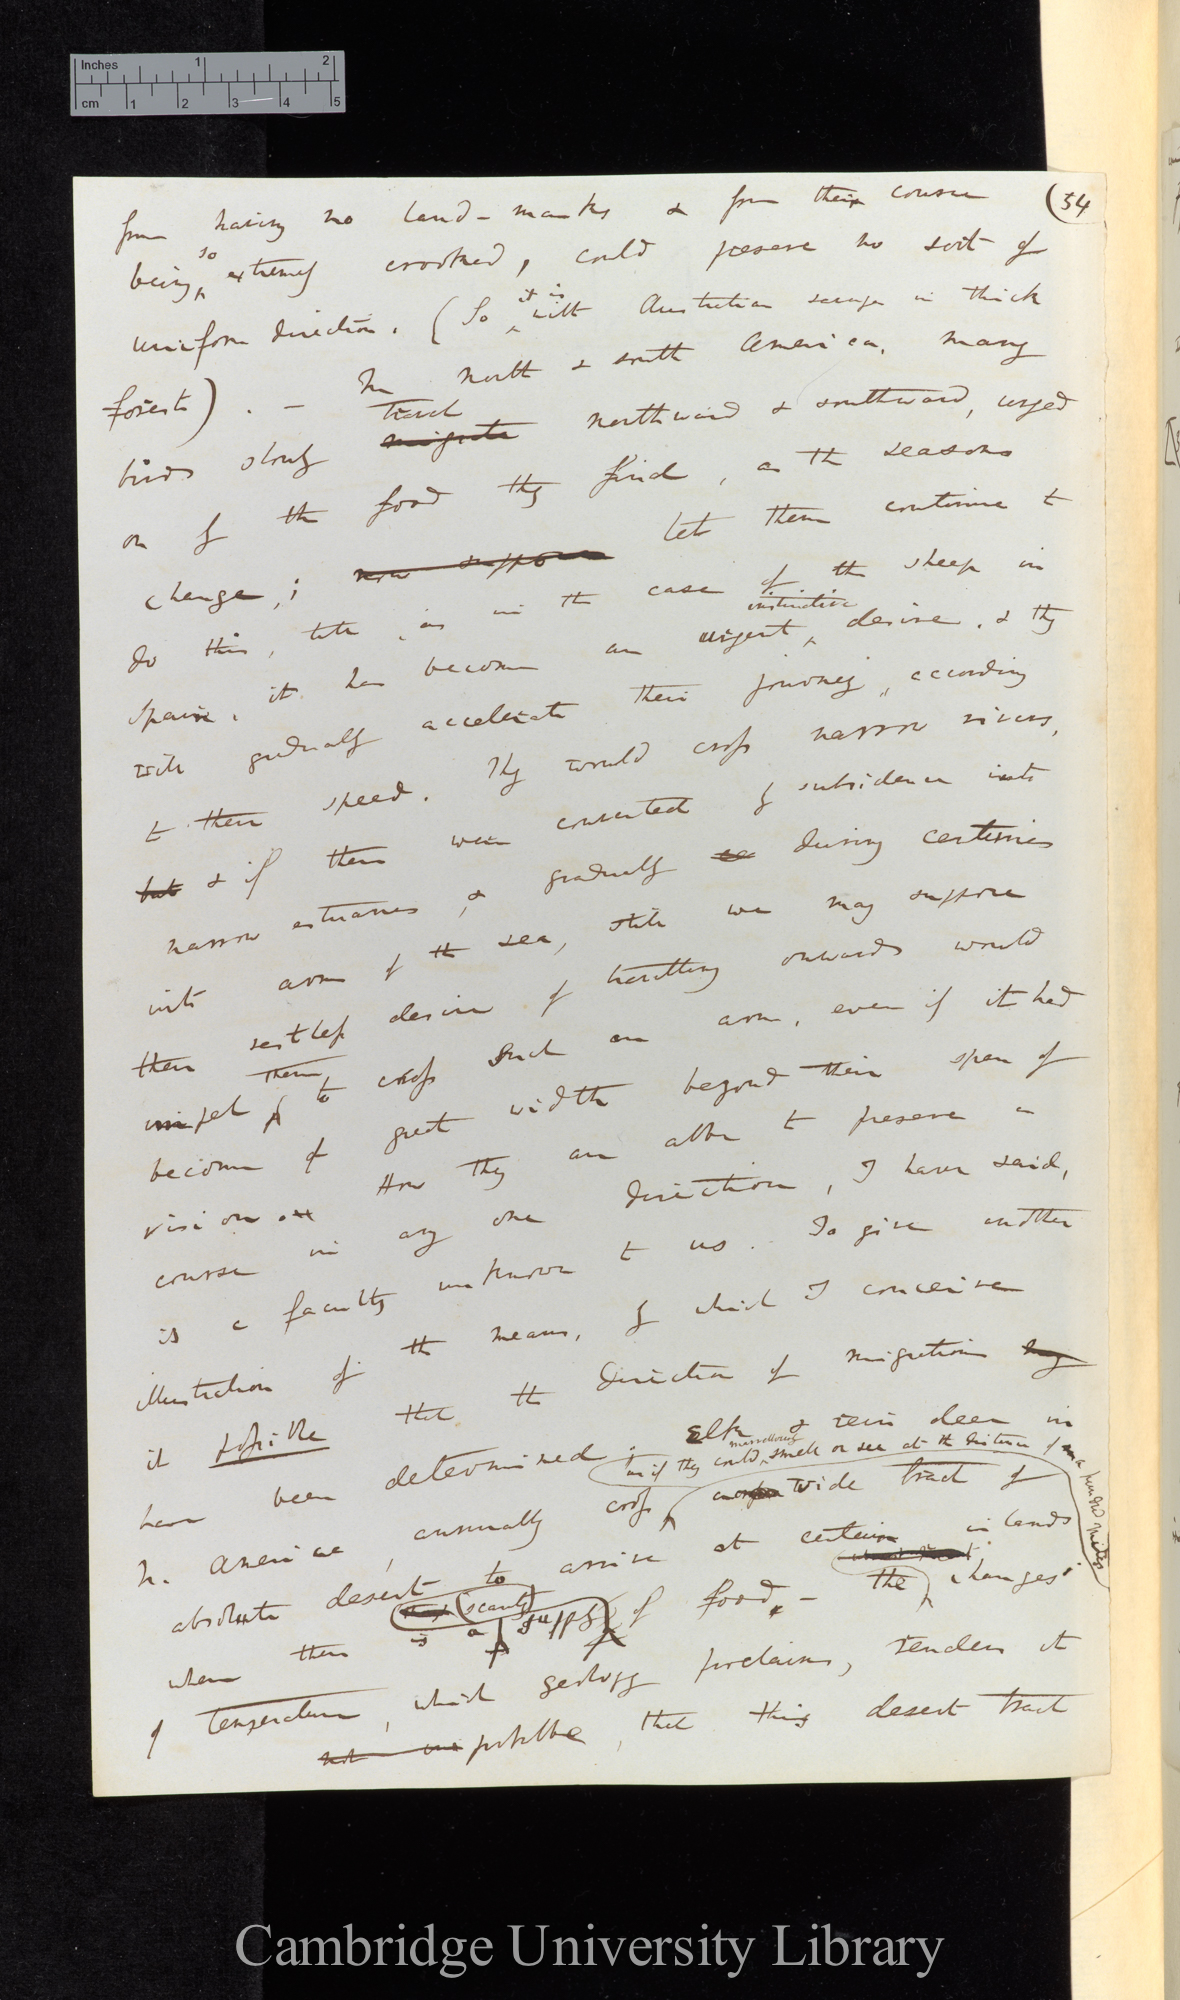 Inches 1 2
cm 1 2 3 4 5
(54
from having no land-marks & from their course
being so extremely crooked, could preserve no sort of
uniform direction. (So it is with Australian savages in thick
forests). — In north & south America, many
birds slowly migrate travel northward & southward, urged
on by the food they find, as the seasons
change; now suppose let them continue to
do this, till, as in the case of the sheep in
Spain, it has become an urgent instinctive desire, & they
will gradually accelerate their journey, according
to their speed. They would cross narrow rivers,
but & if these were converted by subsidence into
narrow estuaries, & gradually during centuries
into arms of the sea, still we may suppose
their restless desire of travelling onwards would
impel them to cross such an arm, even if it had
become of great width beyond their span of
vision. How they are able to preserve a
course in any one direction, I have said,
is a faculty unknown to us. To give another
illustration of the means, by which I conceive
it possible that the direction of migration
have been determined. Elk & rein deer in
N. America, annually cross, as if they could marvellously smell or see at the distance of a hundred miles
a wide tract of
absolute desert to arrive at certain islands
where there is a scanty supply of food. — the changes
of temperature, which geology proclaims, render it
not im probable, that this desert tract
Cambridge University Library